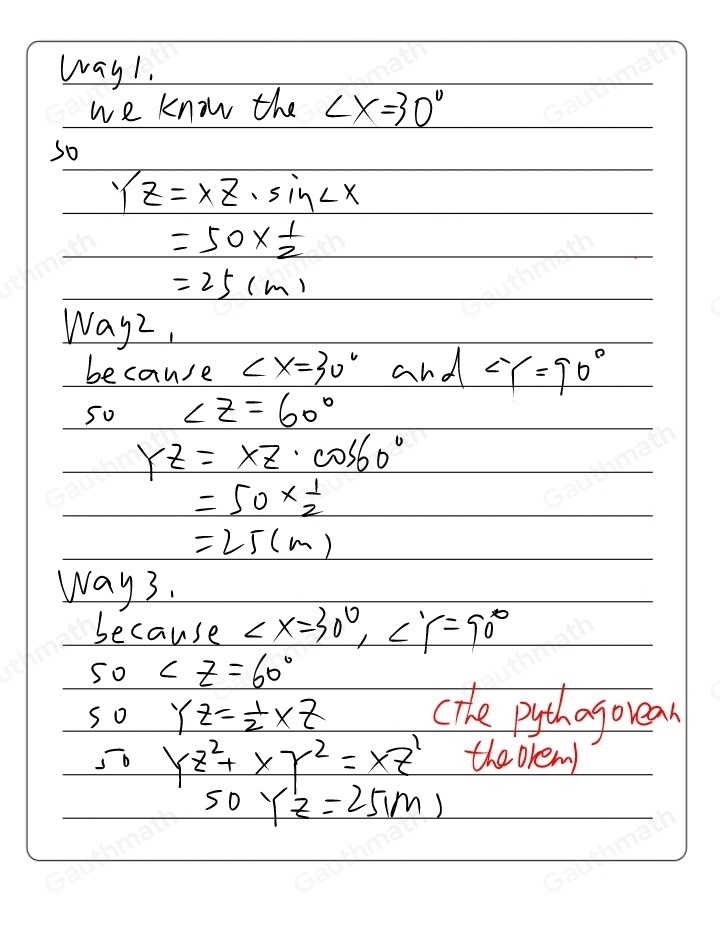 Way 1.
we know the ∠X=30°
so
YZ = XZ · sin∠X
= 50 × 1/2
= 25 (m)
Way 2.
because ∠X=30° and ∠Y=90°
so ∠Z = 60°
YZ = XZ · cos60°
= 50 × 1/2
= 25 (m)
Way 3.
because ∠X=30°, ∠Y=90°
so ∠Z = 60°
so YZ = 1/2 XZ (The pythagorean
so YZ² + XY² = XZ² theorem)
so YZ = 25(m)
Gauthmath